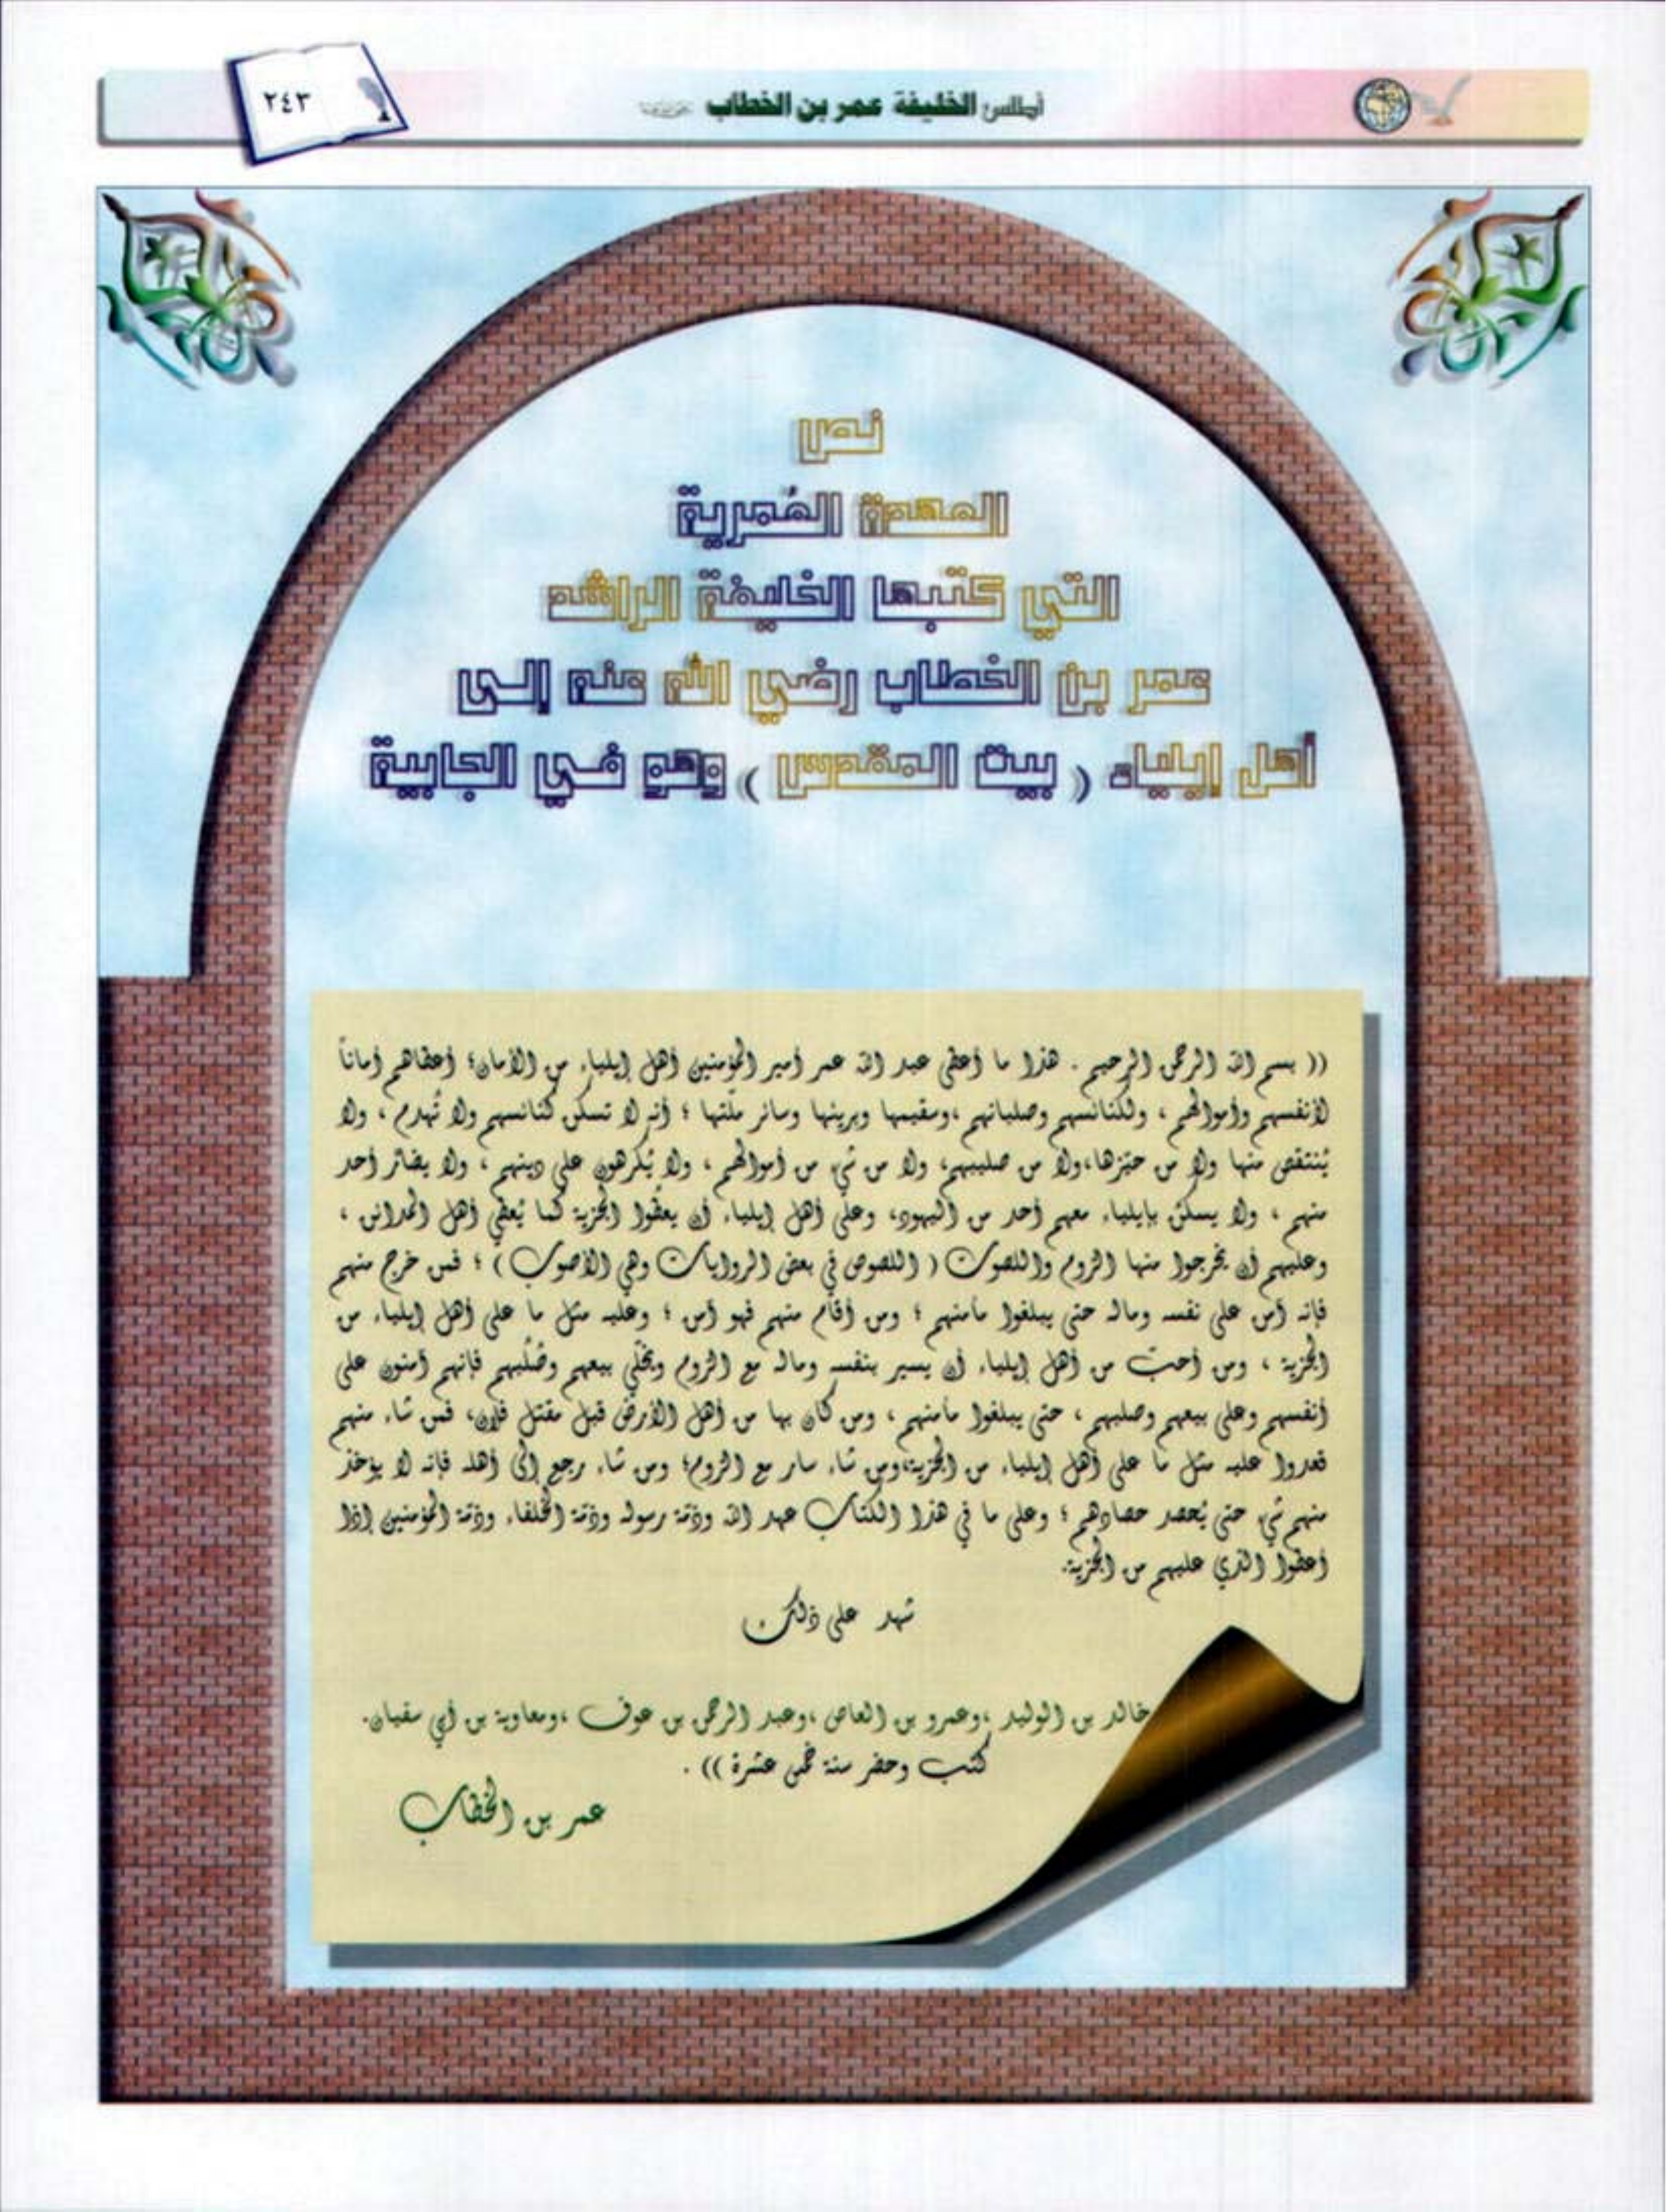 أطلس الخليفة عمر بن الخطاب
٢٤٣
نص
العهدة العُمرية
التي كتبها الخليفة الراشد
عمر بن الخطاب رضي الله عنه إلى
أهل إيلياء ( بيت المقدس ) وهو في الجابية
(( بسم الله الرحمن الرحيم . هذا ما أعطى عبد الله عمر أمير المؤمنين أهل إيلياء من الأمان؛ أعطاهم أماناً
لأنفسهم وأموالهم ، ولكنائسهم وصلبانهم ،وسقيمها وبريئها وسائر ملّتها ؛ أنه لا تسكن كنائسهم ولا تُهدم ، ولا
يُنتقص منها ولا من حيّزها،ولا من صليبهم، ولا من شيء من أموالهم ، ولا يُكرهون على دينهم ، ولا يضارّ أحد
منهم ، ولا يسكنَ بإيلياء معهم أحد من اليهود، وعلى أهل إيلياء أن يعطُوا الجزية كما يُعطي أهل المدائن ،
وعليهم أن يخرجوا منها الروم واللصوت ( اللصوص في بعض الروايات وهي الأصوب ) ؛ فمن خرج منهم
فإنه آمن على نفسه وماله حتى يبلغوا مأمنهم ؛ ومن أقام منهم فهو آمن ؛ وعليه مثل ما على أهل إيلياء من
الجزية ، ومن أحبّ من أهل إيلياء أن يسير بنفسه وماله مع الروم ويخلّي بيعهم وصُلُبهم فإنهم آمنون على
أنفسهم وعلى بيعهم وصلبهم ، حتى يبلغوا مأمنهم ، ومن كان بها من أهل الأرض قبل مقتل فلان، فمن شاء منهم
قعدوا عليه مثل ما على أهل إيلياء من الجزية،ومن شاء سار مع الروم؛ ومن شاء رجع إلى أهله فإنه لا يؤخذ
منهم شيء حتى يُحصد حصادهم ؛ وعلى ما في هذا الكتاب عهد الله وذمّة رسوله وذمّة الخلفاء وذمّة المؤمنين إذا
أعطوا الذي عليهم من الجزية.
شهد على ذلك
خالد بن الوليد ،وعمرو بن العاص ،وعبد الرحمن بن عوف ،ومعاوية بن أبي سفيان.
كتب وحضر سنة خمس عشرة )) .
عمر بن الخطاب